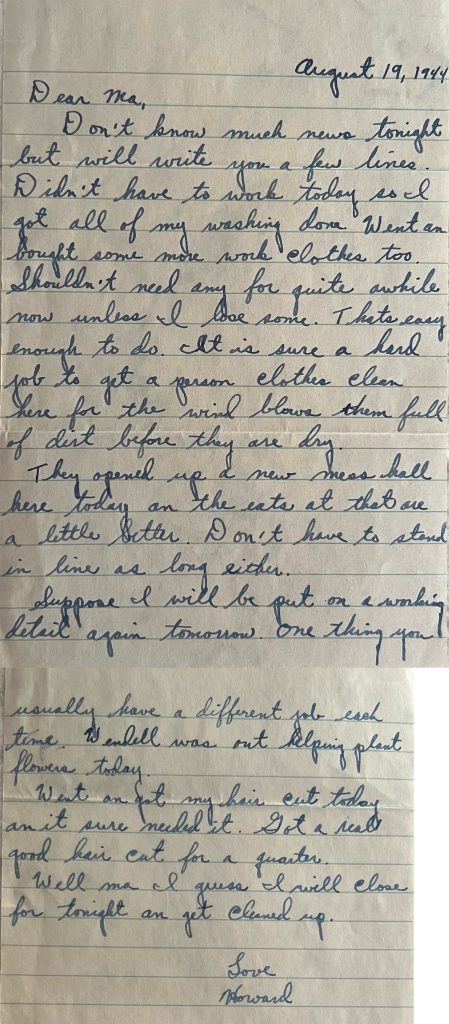 August 19, 1944
Dear Ma,
Don't know much news tonight
but will write you a few lines.
Didn't have to work today so I
got all of my washing done Went an
bought some more work clothes too.
Shouldn't need any for quite awhile
now unless I lose some. Thats easy
enough to do. It is sure a hard
job to get a person clothes clean
here for the wind blows them full
of dirt before they are dry.
They opened up a new mess hall
here today an the eats at that are
a little better. Don't have to stand
in line as long either.
Suppose I will be put on a working
detail again tomorrow. One thing you
usually have a different job each
time. Wendell was out helping plant
flowers today.
Went an got my hair cut today
an it sure needed it. Got a real
good hair cut for a quarter.
Well ma I guess I will close
for tonight an get cleaned up.
Love
Howard